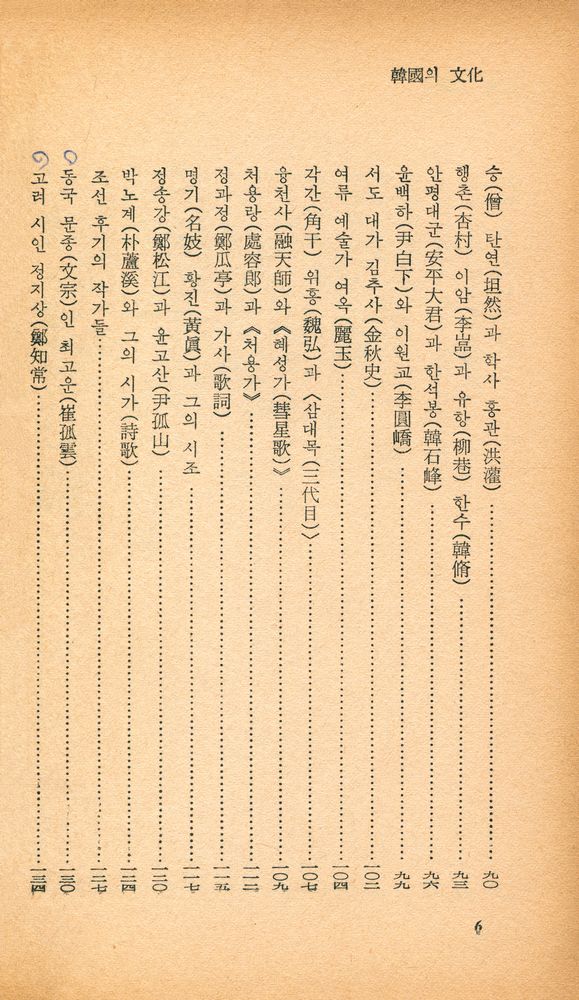 韓國의 文化
승(僧) 탄연(坦然)과 학사 홍관(洪灌)……九〇
행촌(杏村) 이암(李嵒)과 유항(柳巷) 한수(韓脩)……九三
안평대군(安平大君)과 한석봉(韓石峰)……九六
윤백하(尹白下)와 이원교(李圓嶠)……九九
서도 대가 김추사(金秋史)……一〇二
여류 예술가 여옥(麗玉)……一〇四
각간(角干) 위홍(魏弘)과 〈삼대목(三代目)〉……一〇七
융천사(融天師)와 《혜성가(彗星歌)》……一〇九
처용랑(處容郎)과 《처용가》……一一二
정과정(鄭瓜亭)과 가사(歌詞)……一一五
명기(名妓) 황진(黃眞)과 그의 시조……一一七
정송강(鄭松江)과 윤고산(尹孤山)……一二〇
박노계(朴蘆溪)와 그의 시가(詩歌)……一二四
조선 후기의 작가들……一二七
동국 문종(文宗)인 최고운(崔孤雲)……一三〇
고려 시인 정지상(鄭知常)……一三四
6